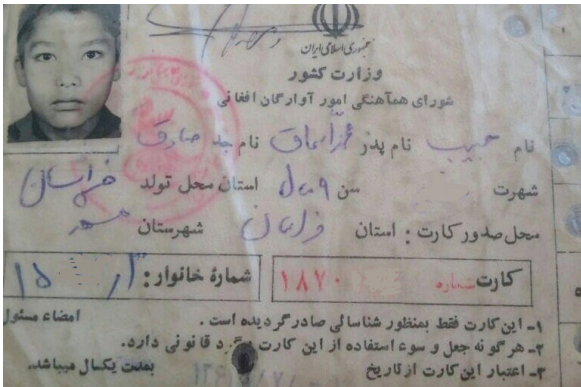 جمهوری اسلامی ایران
وزارت کشور
شورای هماهنگی امور آوارگان افغانی
نام حبیب نام پدر نام جد صادق
شهرت سن ۹ ساله استان محل تولد خراسان
محل صدور کارت : استان شهرستان
کارت شماره ۱۸۷۰ شمارهٔ خانوار :
امضاء مسئول
۱- این کارت فقط بمنظور شناسائی صادر گردیده است .
۲- هر گونه جعل و سوء استفاده از این کارت پیگرد قانونی دارد.
۳- اعتبار این کارت از تاریخ بمدت یکسال میباشد.